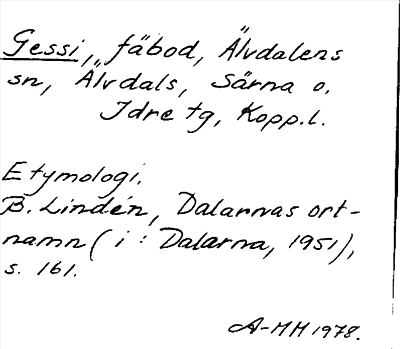 Gessi, fäbod, Älvdalens
sn, Älvdals, Särna o.
Idre tg, Kopp.l.
Etymologi.
B. Lindén, Dalarnas ort-
namn (i: Dalarna, 1951),
s. 161.
A-MM 1978.